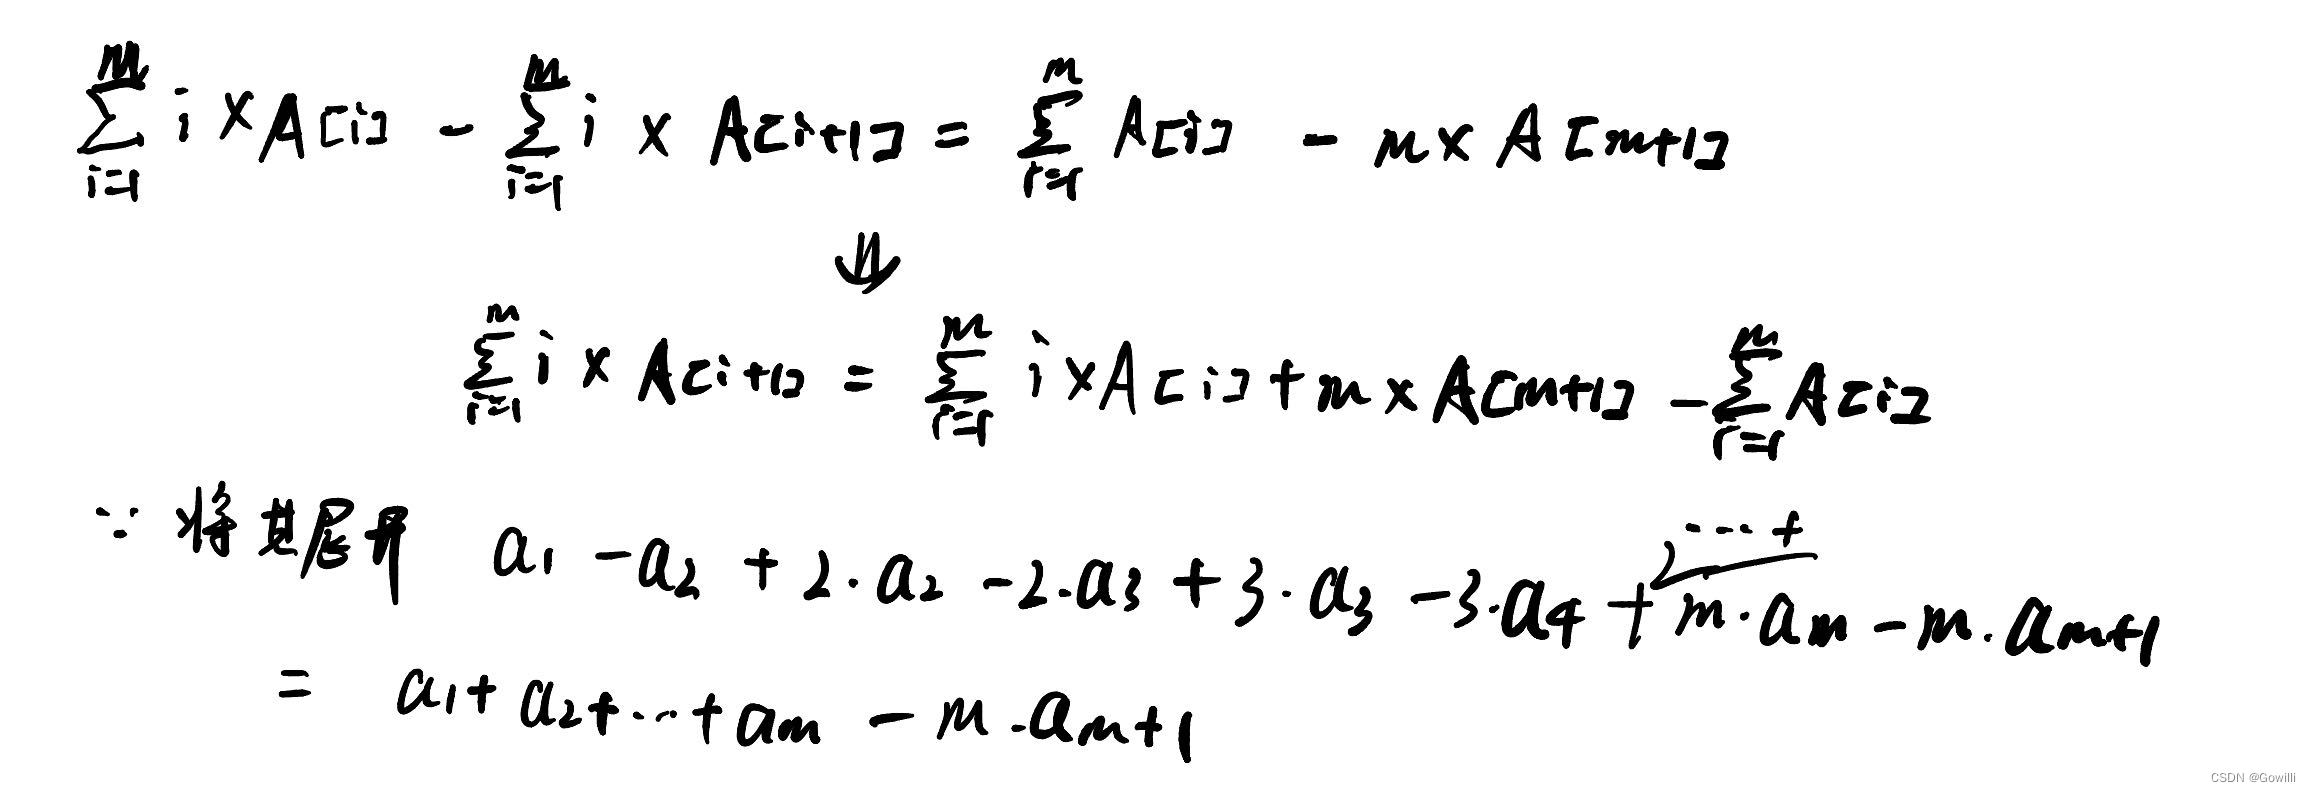 $\sum_{i=1}^{m} i \times A[i] - \sum_{i=1}^{m} i \times A[i+1] = \sum_{i=1}^{m} A[i] - m \times A[m+1]$
⇓
$\sum_{i=1}^{m} i \times A[i+1] = \sum_{i=1}^{m} i \times A[i] + m \times A[m+1] - \sum_{i=1}^{m} A[i]$
∵ 将其展开 $a_1 - a_2 + 2 \cdot a_2 - 2 \cdot a_3 + 3 \cdot a_3 - 3 \cdot a_4 + \cdots + m \cdot a_m - m \cdot a_{m+1}$
$= a_1 + a_2 + \cdots + a_m - m \cdot a_{m+1}$
CSDN @Gowilli